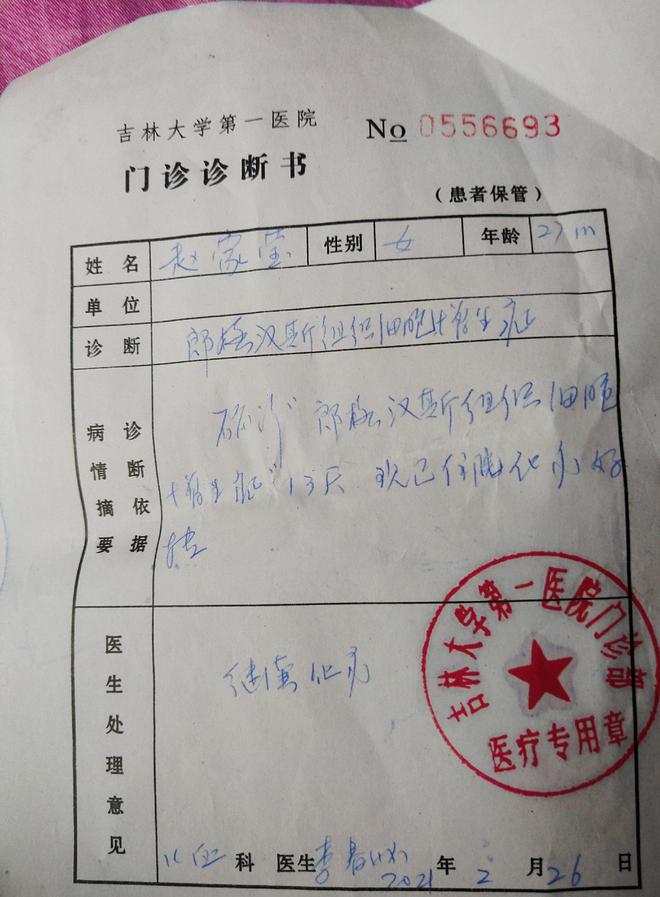 吉林大学第一医院
No 0556693
门诊诊断书
（患者保管）
姓名 赵家莹 性别 女 年龄 27m
单位
诊断 郎格汉斯组织细胞增生症
病情摘要 诊断依据
确诊"郎格汉斯组织细胞
增生症"13天 现已住院化疗好
转
医生处理意见
继续化疗
吉林大学第一医院门诊部
医疗专用章
科 医生 李春 2021 年 2 月 26 日